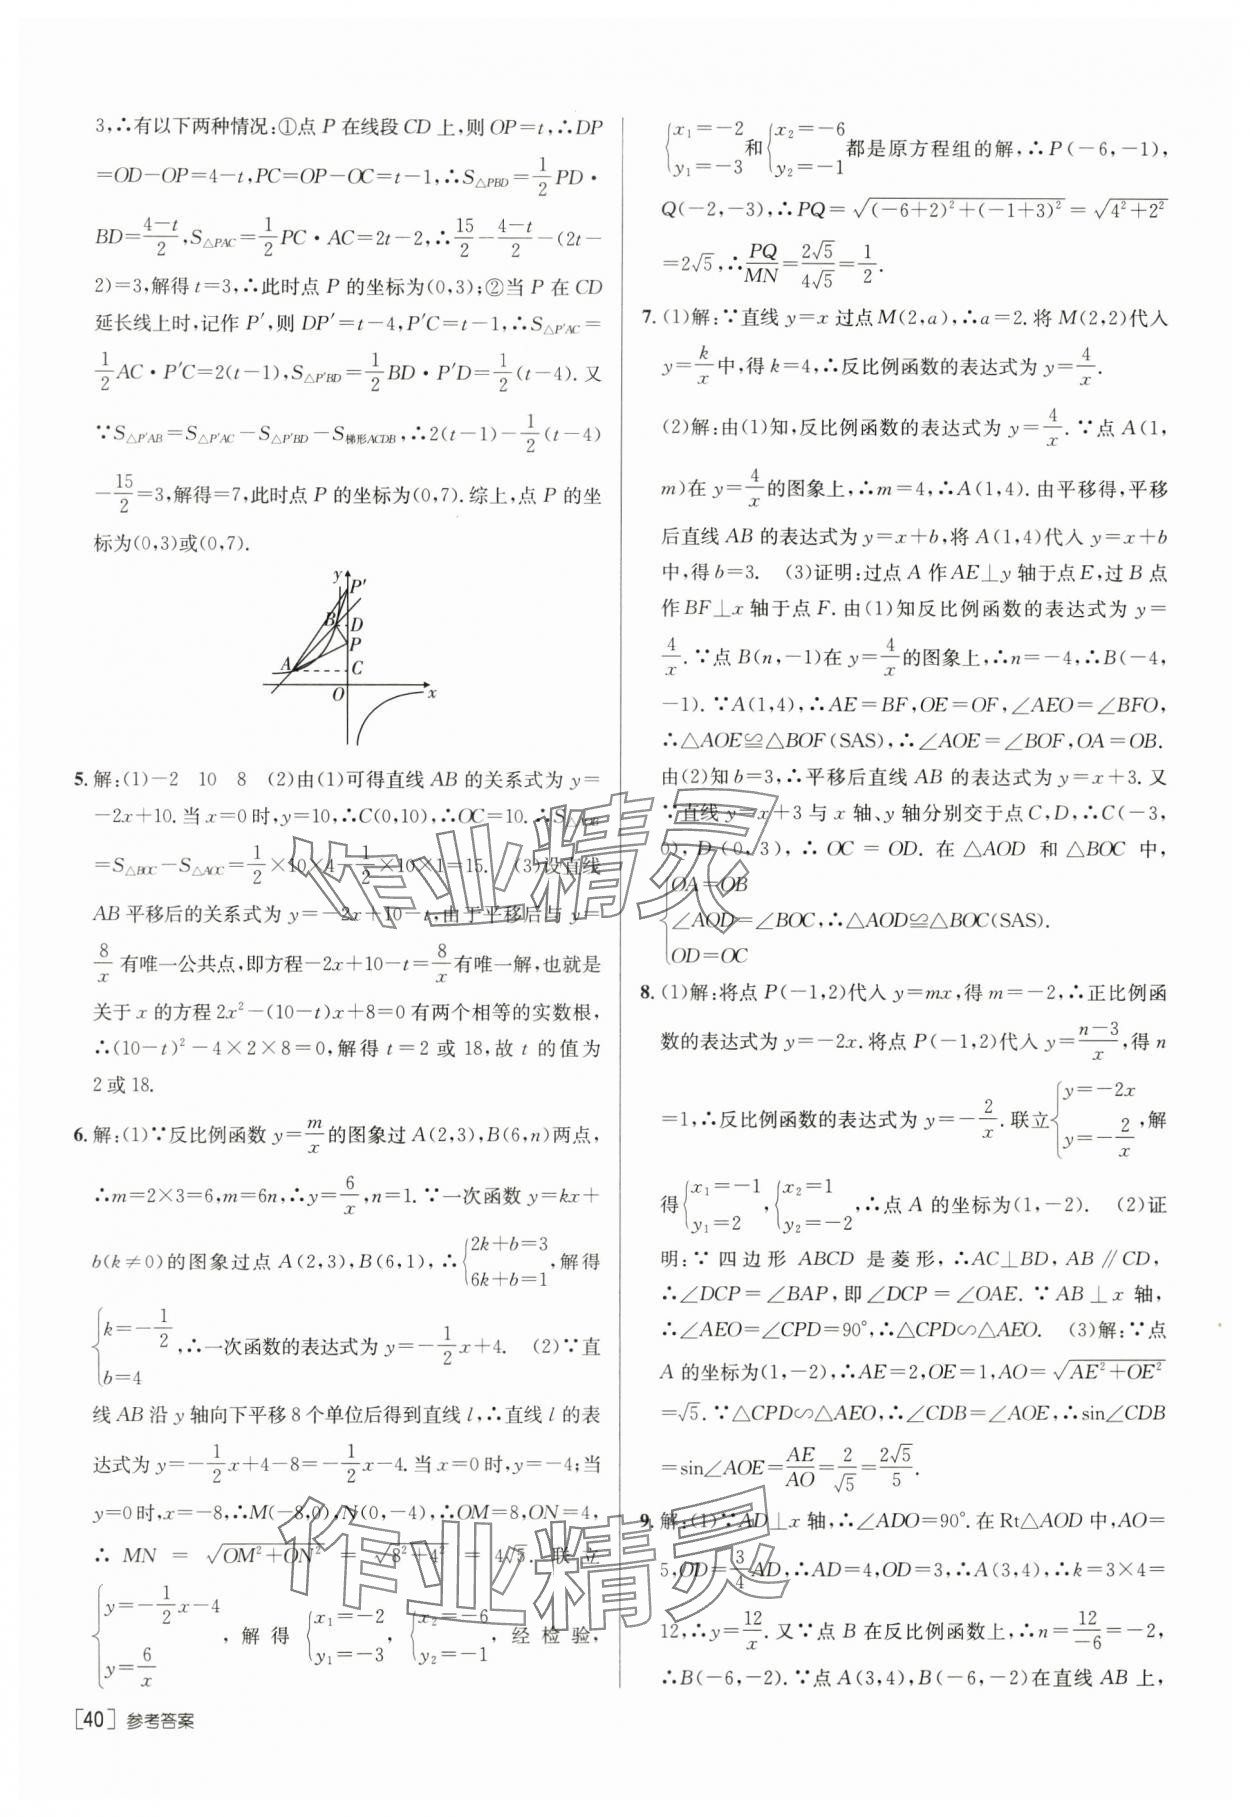 3,∴有以下两种情况:①点 P 在线段 CD 上,则 OP=t,∴DP
=OD-OP=4-t,PC=OP-OC=t-1,∴S△PBD=1/2 PD·
BD=(4-t)/2,S△PAC=1/2 PC·AC=2t-2,∴15/2-(4-t)/2-(2t-
2)=3,解得 t=3,∴此时点 P 的坐标为(0,3);②当 P 在 CD
延长线上时,记作 P′,则 DP′=t-4,P′C=t-1,∴S△P′AC=
1/2 AC·P′C=2(t-1),S△P′BD=1/2 BD·P′D=1/2(t-4). 又
∵S△P′AB=S△P′AC-S△P′BD-S梯形ACDB,∴2(t-1)-1/2(t-4)
-15/2=3,解得=7,此时点 P 的坐标为(0,7). 综上,点 P 的坐
标为(0,3)或(0,7).
y
P′
B
D
P
A
C
O
x
5. 解:(1)-2 10 8 (2)由(1)可得直线 AB 的关系式为 y=
-2x+10. 当 x=0时,y=10,∴C(0,10),∴OC=10. ∴S△AOB
=S△BOC-S△AOC=1/2×10×4-1/2×10×1=15. (3)设直线
AB 平移后的关系式为 y=-2x+10-t,由于平移后与 y=
8/x 有唯一公共点,即方程-2x+10-t=8/x有唯一解,也就是
关于 x 的方程 2x²-(10-t)x+8=0 有两个相等的实数根,
∴(10-t)²-4×2×8=0,解得 t=2 或 18,故 t 的值为
2 或 18.
6. 解:(1)∵反比例函数 y=m/x的图象过 A(2,3),B(6,n)两点,
∴m=2×3=6,m=6n,∴y=6/x,n=1. ∵一次函数 y=kx+
b(k≠0)的图象过点 A(2,3),B(6,1),∴{2k+b=3 6k+b=1,解得
{k=-1/2 b=4,∴一次函数的表达式为 y=-1/2 x+4. (2)∵直
线 AB 沿 y 轴向下平移 8 个单位后得到直线 l,∴直线 l 的表
达式为 y=-1/2 x+4-8=-1/2 x-4. 当 x=0 时,y=-4;当
y=0时,x=-8,∴M(-8,0),N(0,-4),∴OM=8,ON=4,
∴ MN = √(OM²+ON²) = √(8²+4²) = 4√5. 联立
{y=-1/2 x-4 y=6/x,解得{x₁=-2 y₁=-3,{x₂=-6 y₂=-1,经检验,
{x₁=-2 y₁=-3和{x₂=-6 y₂=-1都是原方程组的解,∴P(-6,-1),
Q(-2,-3),∴PQ=√((-6+2)²+(-1+3)²)=√(4²+2²)
=2√5,∴PQ/MN=2√5/4√5=1/2.
7. (1)解:∵直线 y=x 过点 M(2,a),∴a=2. 将 M(2,2)代入
y=k/x中,得 k=4,∴反比例函数的表达式为 y=4/x.
(2)解:由(1)知,反比例函数的表达式为 y=4/x. ∵点 A(1,
m)在 y=4/x的图象上,∴m=4,∴A(1,4). 由平移得,平移
后直线 AB 的表达式为 y=x+b,将 A(1,4)代入 y=x+b
中,得 b=3. (3)证明:过点 A 作 AE⊥y 轴于点 E,过 B 点
作 BF⊥x 轴于点 F. 由(1)知反比例函数的表达式为 y=
4/x. ∵点 B(n,-1)在 y=4/x的图象上,∴n=-4,∴B(-4,
-1). ∵A(1,4),∴AE=BF,OE=OF,∠AEO=∠BFO,
∴△AOE≌△BOF(SAS),∴∠AOE=∠BOF,OA=OB.
由(2)知 b=3,∴平移后直线 AB 的表达式为 y=x+3. 又
∵直线 y=x+3 与 x 轴、y 轴分别交于点 C,D,∴C(-3,
0),D(0,3),∴OC=OD. 在△AOD 和△BOC 中,
{OA=OB
∠AOD=∠BOC,∴△AOD≌△BOC(SAS).
OD=OC
8. (1)解:将点 P(-1,2)代入 y=mx,得 m=-2,∴正比例函
数的表达式为 y=-2x. 将点 P(-1,2)代入 y=(n-3)/x,得 n
=1,∴反比例函数的表达式为 y=-2/x. 联立{y=-2x y=-2/x,解
得{x₁=-1 y₁=2,{x₂=1 y₂=-2,∴点 A 的坐标为(1,-2). (2)证
明:∵四边形 ABCD 是菱形,∴AC⊥BD,AB∥CD,
∴∠DCP=∠BAP,即∠DCP=∠OAE. ∵AB⊥x 轴,
∴∠AEO=∠CPD=90°,∴△CPD∽△AEO. (3)解:∵点
A 的坐标为(1,-2),∴AE=2,OE=1,AO=√(AE²+OE²)
=√5. ∵△CPD∽△AEO,∴∠CDB=∠AOE,∴sin∠CDB
=sin∠AOE=AE/AO=2/√5=2√5/5.
9. 解:(1)∵AD⊥x 轴,∴∠ADO=90°. 在 Rt△AOD 中,AO=
5,OD=3/4 AD,∴AD=4,OD=3,∴A(3,4),∴k=3×4=
12,∴y=12/x. 又∵点 B 在反比例函数上,∴n=12/-6=-2,
∴B(-6,-2). ∵点 A(3,4),B(-6,-2)在直线 AB 上,
[40] 参考答案
作业精灵
作业精灵